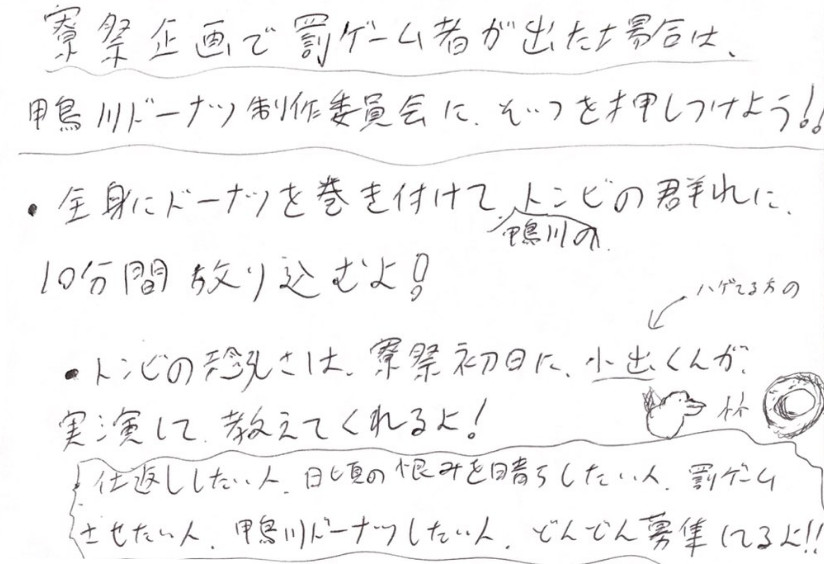 寮祭企画で罰ゲーム者が出た場合は、
鴨川ドーナツ制作委員会に、そいつを押しつけよう!!
・全身にドーナツを巻き付けて、トンビの群れに、
鴨川の
10分間放り込むよ!
ハゲてる方の
・トンビの恐ろしさは、寮祭初日に、小出くんが、
実演して、教えてくれるよ!
仕返ししたい人、日頃の恨みを晴らしたい人、罰ゲーム
させたい人、鴨川ドーナツしたい人、どんどん募集してるよ!!